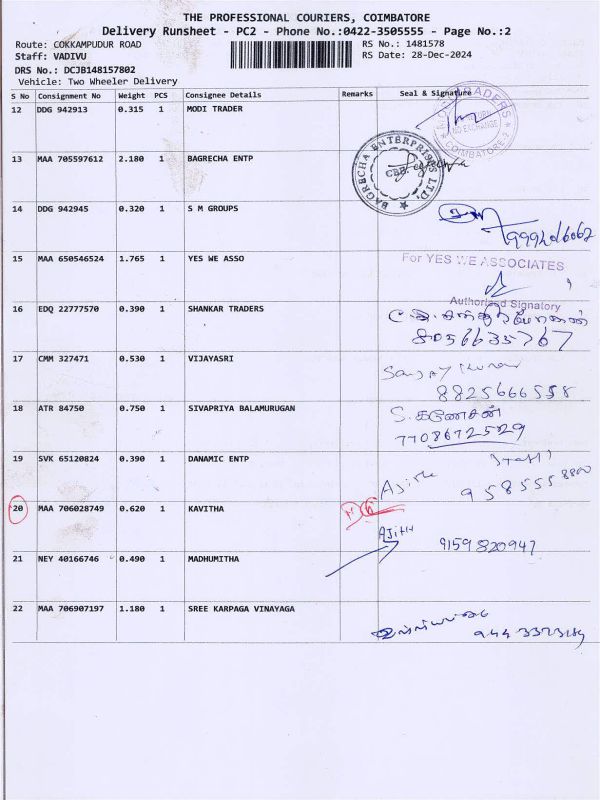 THE PROFESSIONAL COURIERS, COIMBATORE
Delivery Runsheet - PC2 - Phone No.:0422-3505555 - Page No.:2
Route: COKKAMPUDUR ROAD RS No.: 1481578
Staff: VADIVU RS Date: 28-Dec-2024
DRS No.: DCJB148157802
Vehicle: Two Wheeler Delivery
S No Consignment No Weight PCS Consignee Details Remarks Seal & Signature
12 DDG 942913 0.315 1 MODI TRADER
TRADERS
NO EXCHANGE
COIMBATORE
13 MAA 705597612 2.180 1 BAGRECHA ENTP
BAGRECHA ENTERPRISES LTD.
CBE.
14 DDG 942945 0.320 1 S M GROUPS
15 MAA 650546524 1.765 1 YES WE ASSO
For YES WE ASSOCIATES
Authorised Signatory
16 EDQ 22777570 0.390 1 SHANKAR TRADERS
8056635767
17 CMM 327471 0.530 1 VIJAYASRI
8825666558
18 ATR 84750 0.750 1 SIVAPRIYA BALAMURUGAN
S. கணேசன்
7708672529
19 SVK 65120824 0.390 1 DANAMIC ENTP
20 MAA 706028749 0.620 1 KAVITHA
AJith
9159820947
21 NEY 40166746 0.490 1 MADHUMITHA
22 MAA 706907197 1.180 1 SREE KARPAGA VINAYAGA